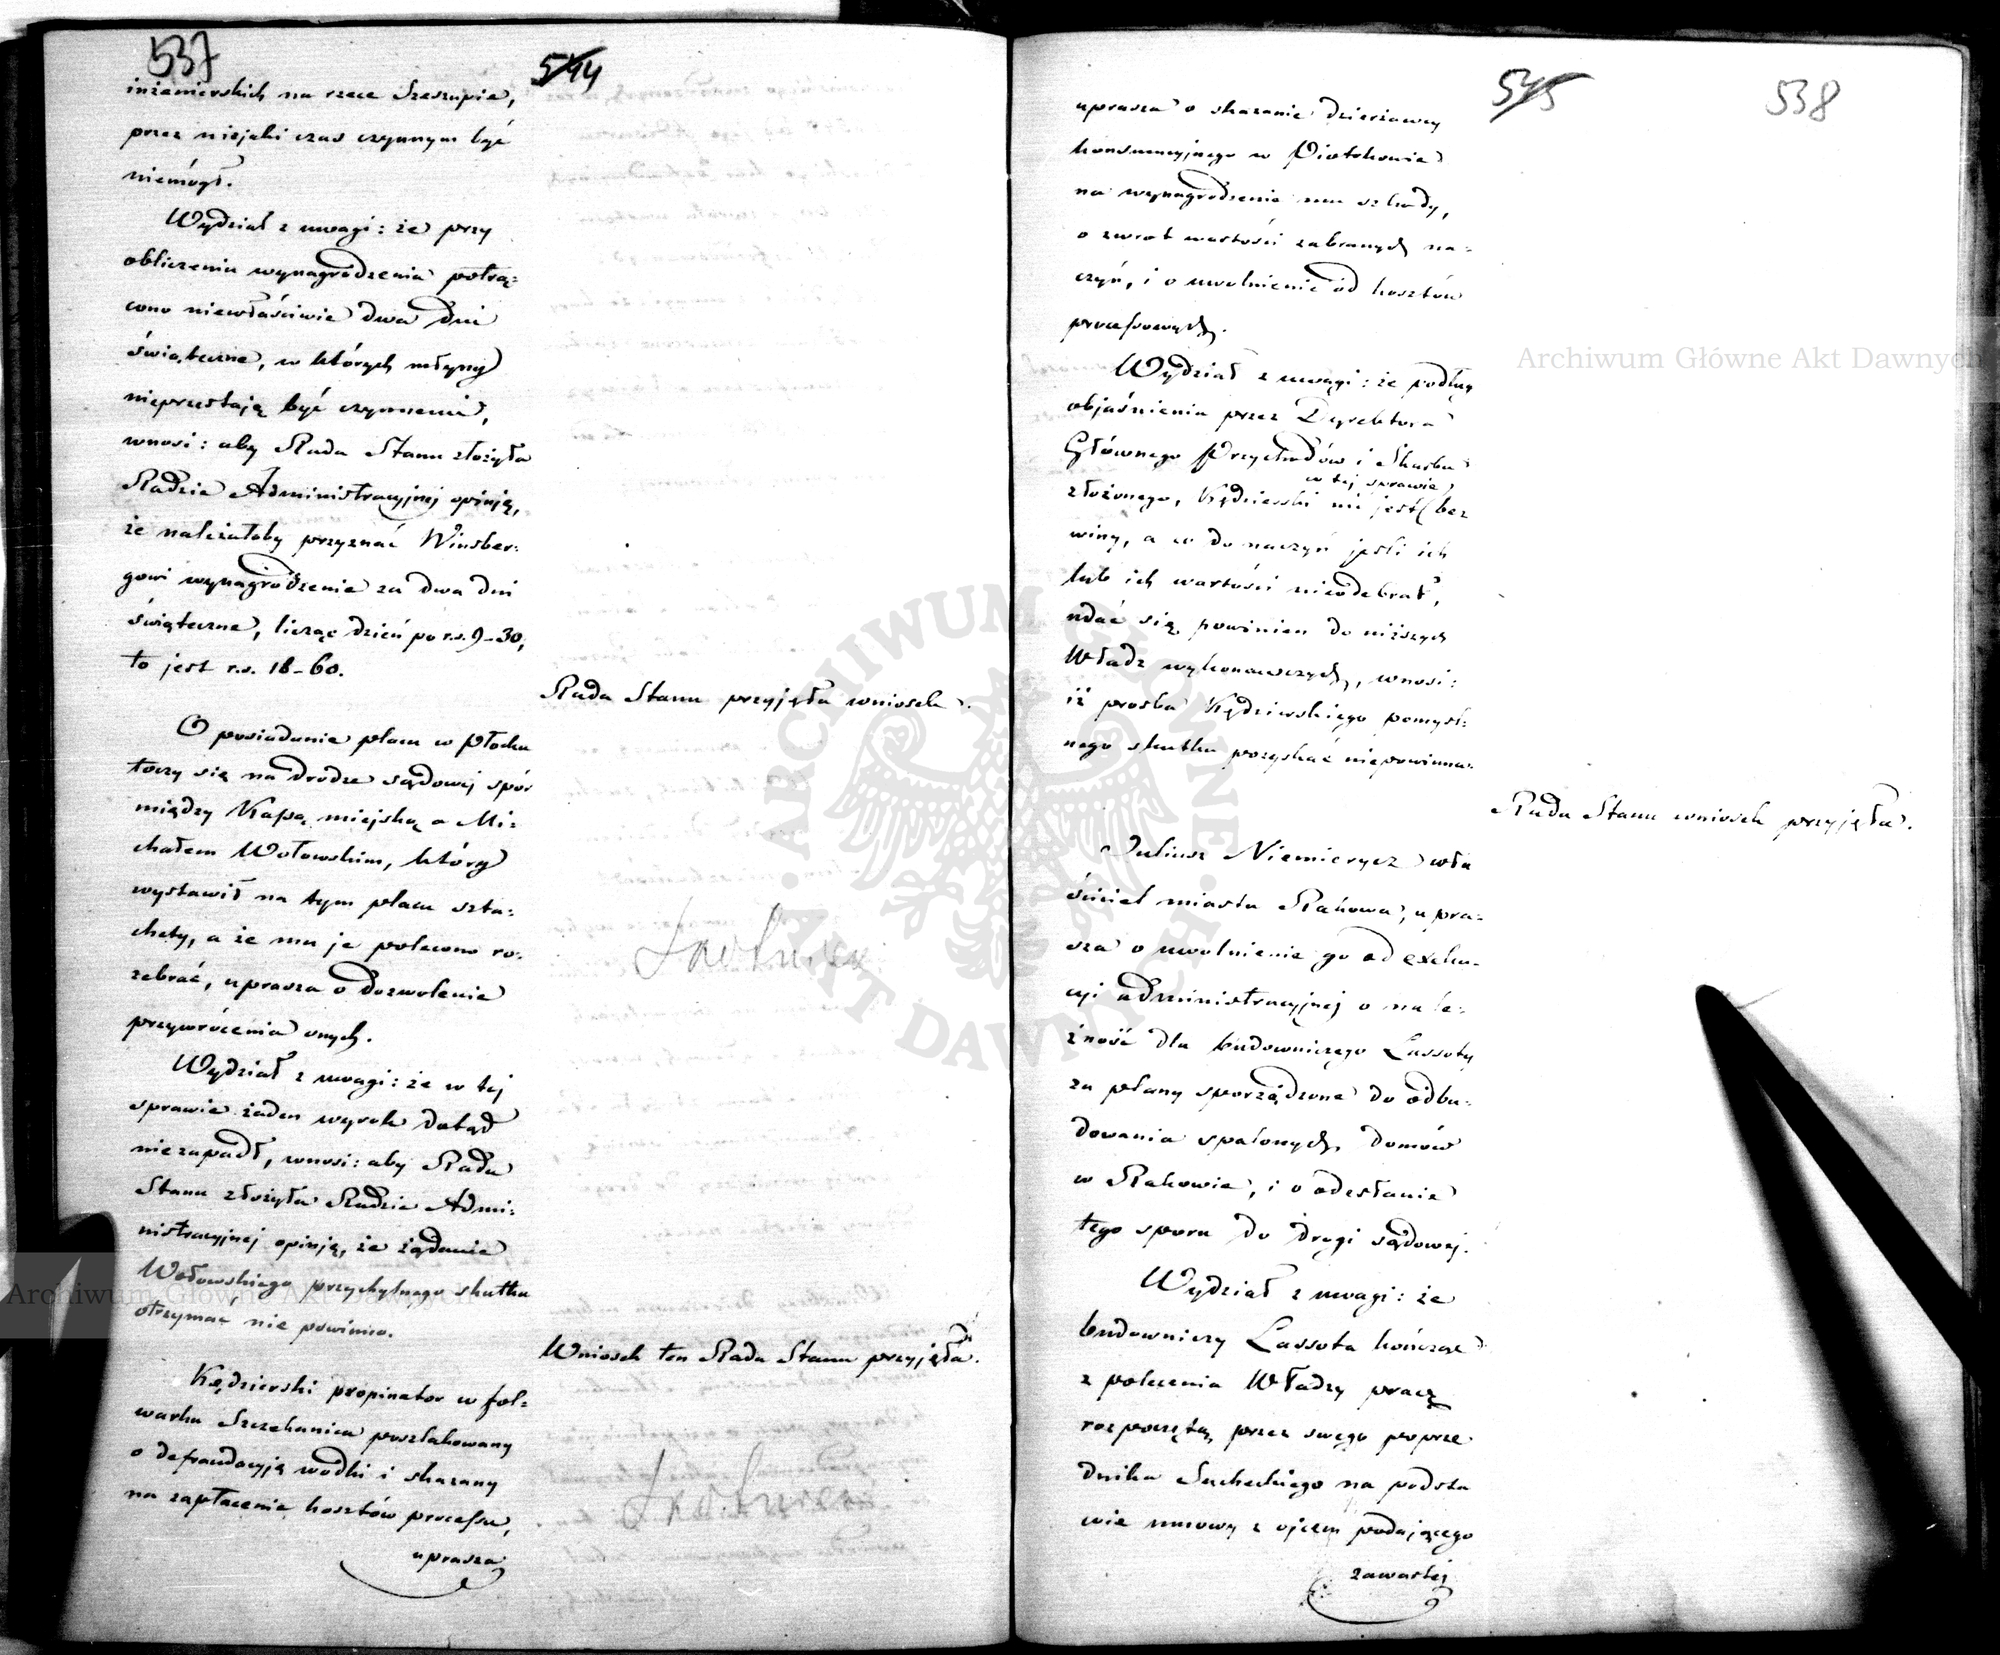 537
544
inżenierskich na rzece Szeszupie,
przez niejaki czas czynnym być
niemógł.
Wydział z uwagi: że przy
obliczeniu wynagrodzenia potrą-
cono niewłaściwie dwa dni
świąteczne, w których młyny
nieprzestają być czynnemi,
wnosi: aby Rada Stanu złożyła
Radzie Administracyjnej opinją,
że należałoby przyznać Winsber-
gowi wynagrodzenie za dwa dni
świąteczne, licząc dzień po r.s. 9-30,
to jest r.s. 18-60.
Rada Stanu przyjęła wniosek.
O posiadanie placu w Płocku
toczy się na drodze sądowej spór
między Kassą miejską a Mi-
chałem Wołowskim, który
wystawił na tym placu szta-
chety, a że mu je polecono ro-
zebrać, uprasza o dozwolenie
przywrócenia onych.
Wydział z uwagi: że w tej
sprawie żaden wyrok dotąd
niezapadł, wnosi: aby Rada
Stanu złożyła Radzie Admi-
nistracyjnej opinją, że żądanie
Wołowskiego przychylnego skutku
otrzymać nie powinno.
Wniosek ten Rada Stanu przyjęła.
Kędzierski propinator w fol-
warku Szczekanica poszlakowany
o defraudacyją wódki i skazany
na zapłacenie kosztów processu,
uprasza
545
538
uprasza o skazanie dzierżawcy
konsumcyjnego w Piotrkowie
na wynagrodzenie mu szkody,
o zwrot wartości zabranych na-
czyń, i o uwolnienie od kosztów
processowych.
Wydział z uwagi: że podług
objaśnienia przez Dyrektora
Głównego Przychodów i Skarbu
w tej sprawie
złożonego, Kędzierski nie jest bez
winy, a co do naczyń jeśli ich
lub ich wartości nieodebrał,
udać się powinien do niższych
Władz wykonawczych, wnosi:
iż prośba Kędzierskiego pomyśl-
nego skutku pozyskać niepowinna.
Rada Stanu wniosek przyjęła.
Juliusz Niemierycz wła
ściciel miasta Rakowa, upra-
sza o uwolnienie go od exeku-
cyi administracyjnej o nale-
żność dla budowniczego Lassoty
za plany sporządzone do odbu-
dowania spalonych domów
w Rakowie, i o odesłanie
tego sporu do drogi sądowej.
Wydział z uwagi: że
budowniczy Lassota kończąc
z polecenia Władzy pracę
rozpoczętą przez swego poprze
dnika Sucheckiego na podsta
wie umowy z ojcem podającego
zawartej
Archiwum Główne Akt Dawnych
Archiwum Główne Akt Dawnych
ARCHIWUM GŁÓWNE AKT DAWNYCH